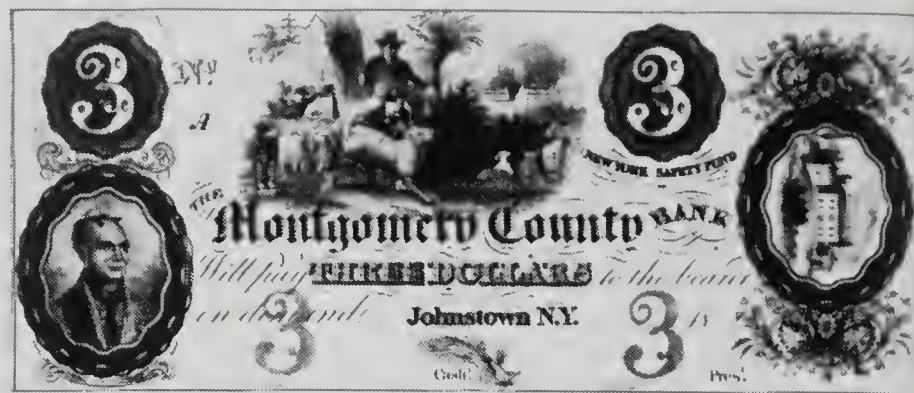 3 No. 3
A
NEW YORK SAFETY FUND
THE Montgomery County BANK
Will pay THREE DOLLARS to the bearer
on demand
3 Johnstown N.Y. 3
Cash.r Pres.t